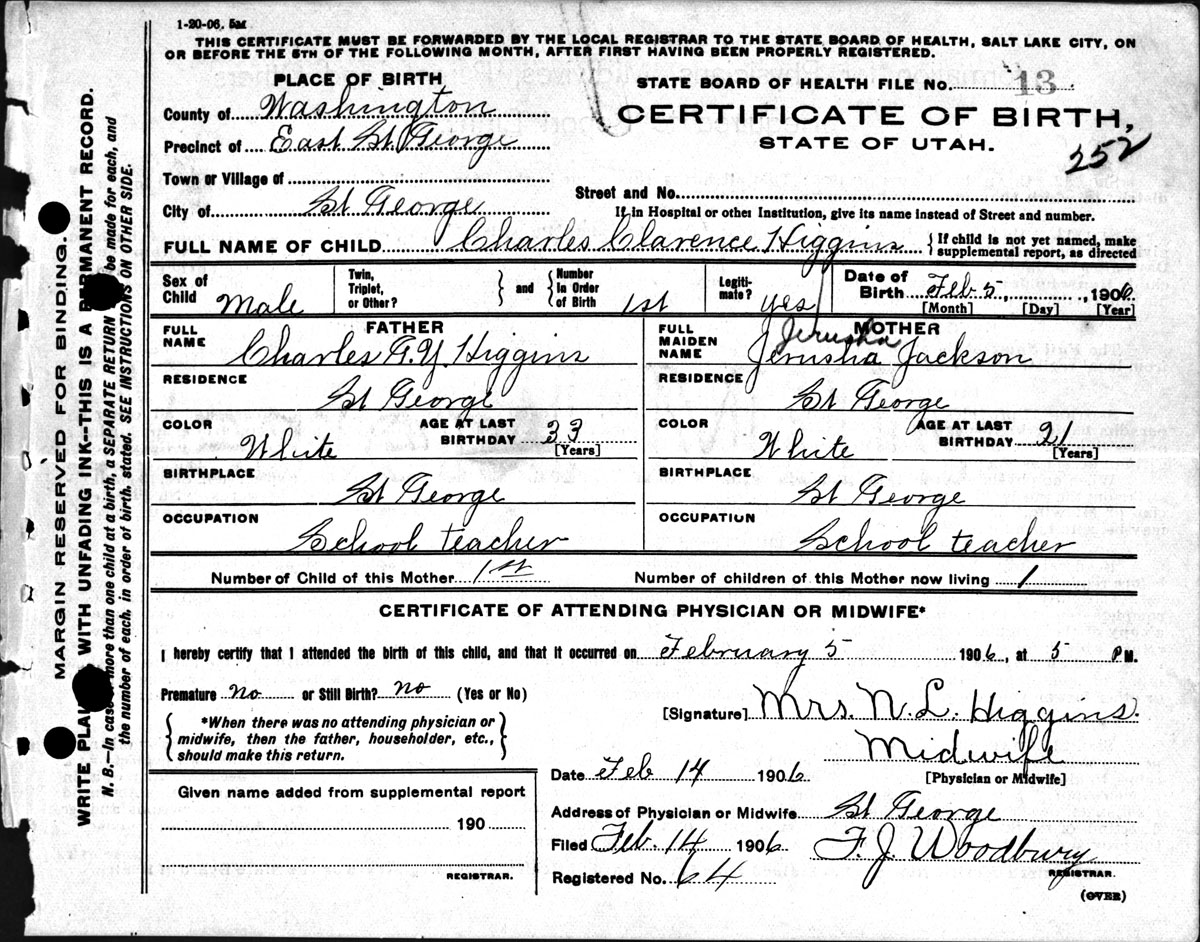 1-20-06. 5M
THIS CERTIFICATE MUST BE FORWARDED BY THE LOCAL REGISTRAR TO THE STATE BOARD OF HEALTH, SALT LAKE CITY, ON
OR BEFORE THE 5TH OF THE FOLLOWING MONTH, AFTER FIRST HAVING BEEN PROPERLY REGISTERED.
MARGIN RESERVED FOR BINDING.
WRITE PLAINLY WITH UNFADING INK--THIS IS A PERMANENT RECORD.
N. B.--In case of more than one child at a birth, a SEPARATE RETURN must be made for each, and
the number of each, in order of birth, stated. SEE INSTRUCTIONS ON OTHER SIDE.
PLACE OF BIRTH
County of Washington
Precinct of East St George
Town or Village of
City of St George
STATE BOARD OF HEALTH FILE NO. 13
CERTIFICATE OF BIRTH,
STATE OF UTAH.
252
Street and No.
If in Hospital or other Institution, give its name instead of Street and number.
FULL NAME OF CHILD Charles Clarence Higgins {If child is not yet named, make
supplemental report, as directed
Sex of Child Male
Twin, Triplet, or Other? } and { Number In Order of Birth 1st
Legiti-mate? yes
Date of Birth Feb 5, 1906
[Month] [Day] [Year]
FATHER
FULL NAME Charles F. Y. Higgins
RESIDENCE St George
COLOR White AGE AT LAST BIRTHDAY 33
[Years]
BIRTHPLACE St George
OCCUPATION School teacher
MOTHER
Jerusha
FULL MAIDEN NAME Jerusha Jackson
RESIDENCE St George
COLOR White AGE AT LAST BIRTHDAY 21
[Years]
BIRTHPLACE St George
OCCUPATION School teacher
Number of Child of this Mother 1st Number of children of this Mother now living 1
CERTIFICATE OF ATTENDING PHYSICIAN OR MIDWIFE*
I hereby certify that I attended the birth of this child, and that it occurred on February 5 1906, at 5 PM.
Premature no or Still Birth? no (Yes or No)
{*When there was no attending physician or
midwife, then the father, householder, etc.,
should make this return.}
[Signature] Mrs. N. L. Higgins.
Midwife
Date Feb 14 1906 [Physician or Midwife]
Given name added from supplemental report
190
REGISTRAR.
Address of Physician or Midwife St George
Filed Feb. 14 1906 F. J. Woodbury
REGISTRAR.
Registered No. 64
(OVER)